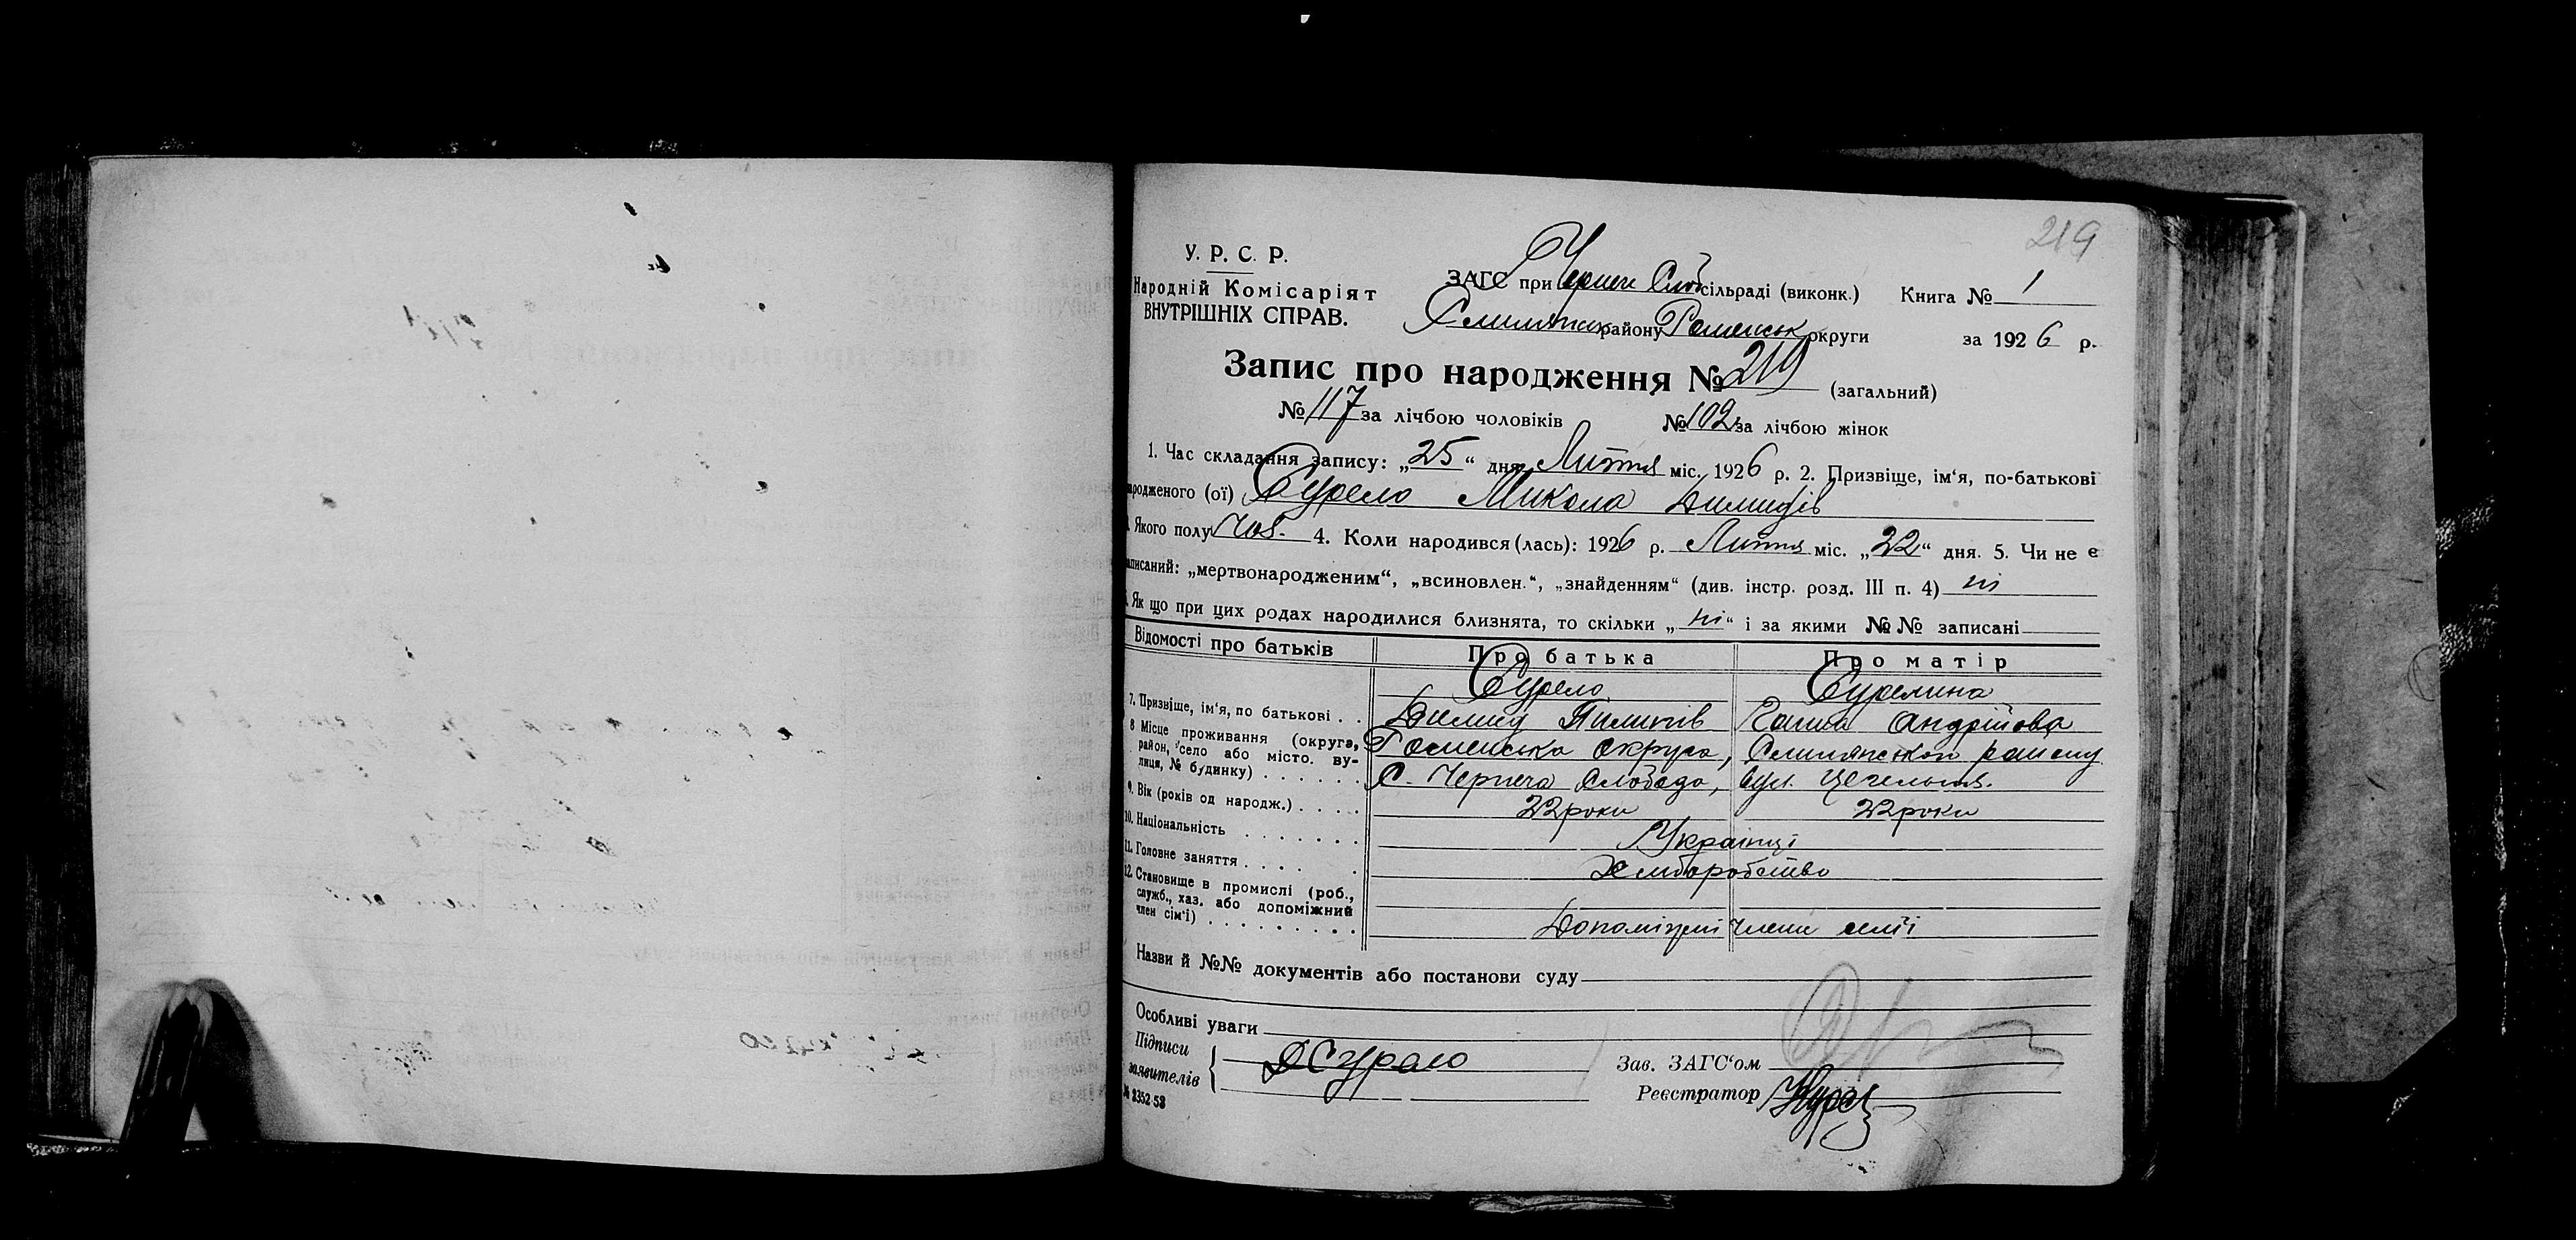 219
У. Р. С. Р.
Народній Комісаріят
ВНУТРІШНІХ СПРАВ.
ЗАГС при Чернеч Слоб сільраді (виконк.) Книга № 1
району Роменськ округи за 1926 р.
Запис про народження № 219 (загальний)
№ 117 за лічбою чоловіків № 102 за лічбою жінок
1. Час складання запису: „25“ дня Липня міс. 1926 р. 2. Призвіще, ім‘я, по-батькові
народженого (ої) Сурело Микола Демидів
Якого полу Чов. 4. Коли народився (лась): 1926 р. Липня міс. „22“ дня. 5. Чи не є
записаний: „мертвонародженим“, „всиновлен.“, „знайденням“ (див. інстр. розд. III п. 4) ні
Як що при цих родах народилися близнята, то скільки „ні“ і за якими №№ записані
Відомості про батьків Про батька Про матір
Сурело Сурелина
7. Призвіще, ім‘я, по батькові . . Демид Пилипів Галина Андрійова
8 Місце проживання (округа, район, село або місто. вулиця, № будинку) Роменська округа, Смілянського району
С. Чернеча Слобода, вул. Цегельня.
9. Вік (років од народж.) . . . . 22 роки 22 роки
10. Національність Українці
11. Головне заняття . . . . Хліборобство
12. Становище в промислі (роб.,
служб., хаз. або допоміжний
член сім‘ї) Допоміжні члени сімї
Назви й №№ документів або постанови суду
Особливі уваги
Підписи
заявителів ДСурело
Зав. ЗАГС‘ом
Реєстратор
№ 2352 53